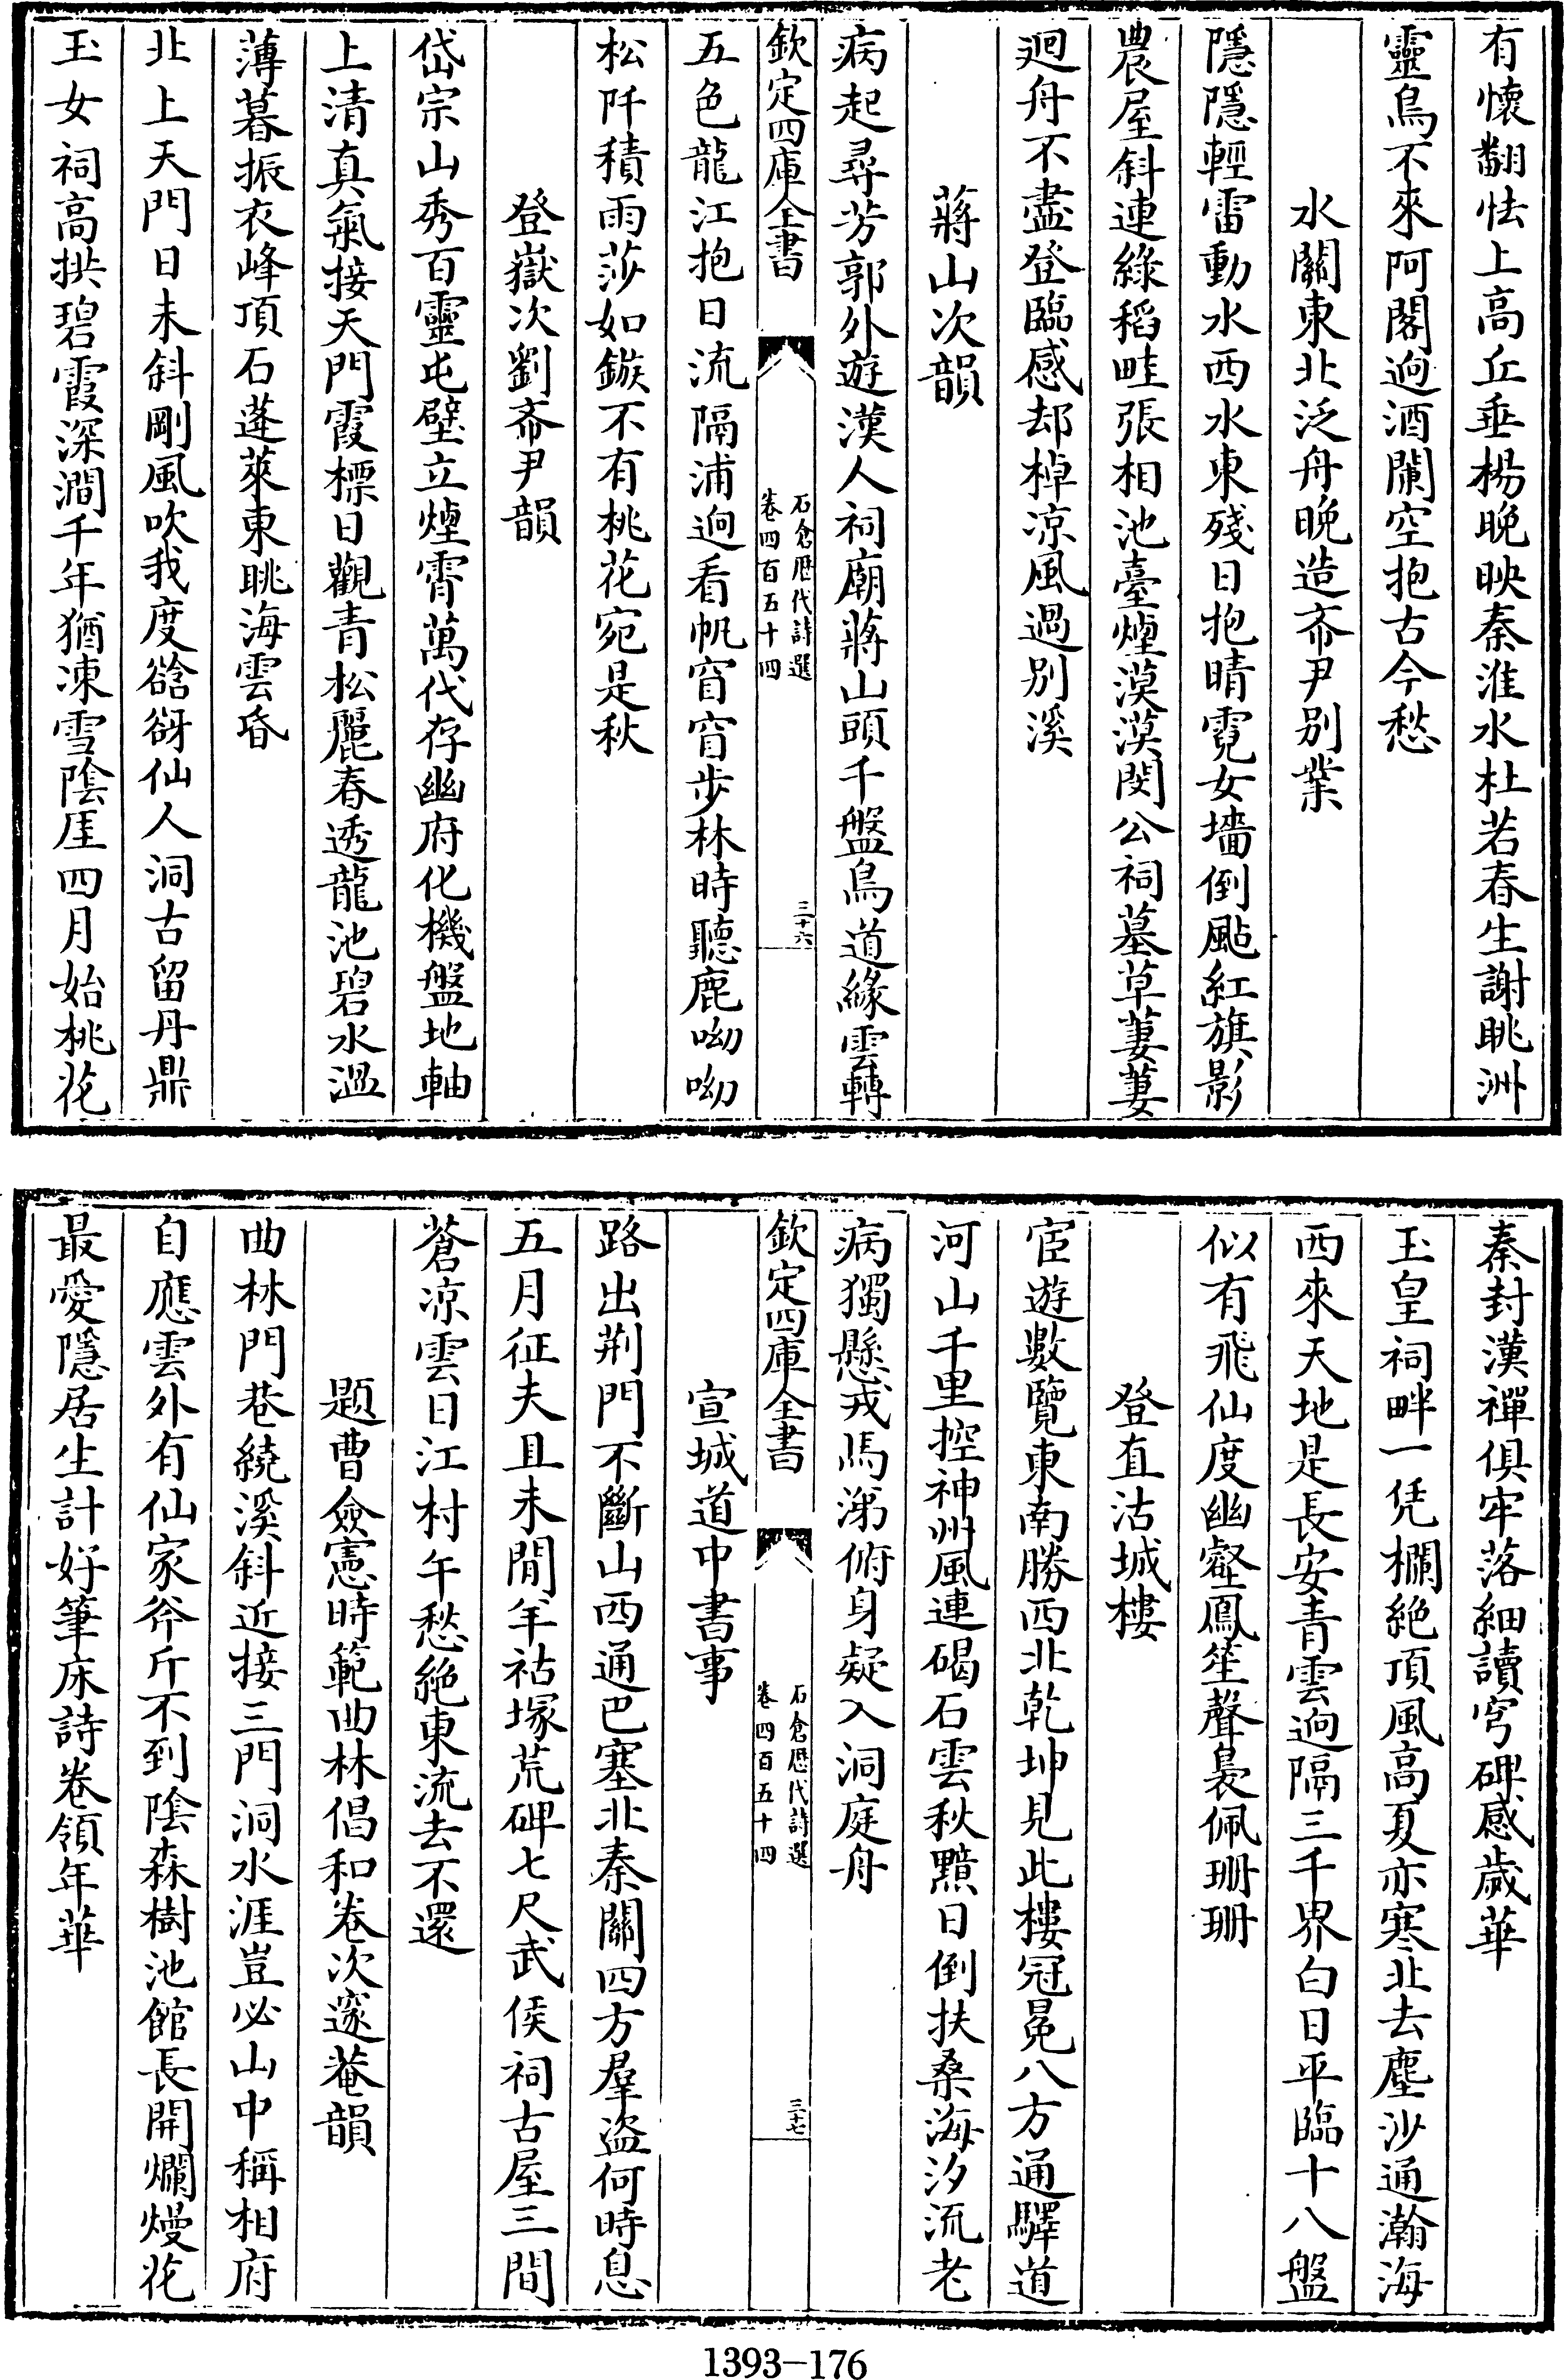 有懷翻怯上高丘垂楊晚映秦淮水杜若春生謝眺洲
靈鳥不來阿閣逈酒闌空抱古今愁
水關東北泛舟晚造斋尹別業
隱隱輕雷動水西水東殘日抱晴霓女墻倒颭紅旗影
農屋斜連綠稻畦張相池臺煙漠漠閔公祠墓草萋萋
迴舟不盡登臨感却棹凉風過別溪
蔣山次韻
病起尋芳郭外遊漢人祠廟蔣山頭千盤鳥道緣雲轉
欽定四庫全書
石倉歷代詩選
卷四百五十四
三十六
五色龍江抱日流隔浦逈看帆窅窅步林時聽鹿呦呦
松阡積雨莎如鏃不有桃花宛是秋
登嶽次劉斋尹韻
岱宗山秀百靈屯壁立煙霄萬代存幽府化機盤地軸
上清真氣接天門霞標日觀青松麗春透龍池碧水温
薄暮振衣峰頂石蓬萊東眺海雲昏
北上天門日未斜剛風吹我度谽谺仙人洞古留丹鼎
玉女祠高拱碧霞深澗千年猶凍雪陰厓四月始桃花
秦封漢禪俱牢落細讀穹碑感歲華
玉皇祠畔一凭欄絶頂風高夏亦寒北去塵沙通瀚海
西來天地是長安青雲逈隔三千界白日平臨十八盤
似有飛仙度幽壑鳳笙聲裊佩珊珊
登直沽城樓
宦遊數覽東南勝西北乾坤見此樓冠冕八方通驛道
河山千里控神州風連碣石雲秋黯日倒扶桑海汐流老
病獨懸戎馬涕俯身疑入洞庭舟
欽定四庫全書
石倉歷代詩選
卷四百五十四
三十七
宣城道中書事
路出荆門不斷山西通巴塞北秦關四方羣盜何時息
五月征夫且未閒羊祜塚荒碑七尺武侯祠古屋三間
蒼凉雲日江村午愁絶東流去不還
題曹僉憲時範曲林倡和卷次邃菴韻
曲林門巷繞溪斜近接三門洞水涯豈必山中稱相府
自應雲外有仙家斧斤不到陰森樹池館長開爛熳花
最愛隱居生計好筆床詩卷領年華
1393-176